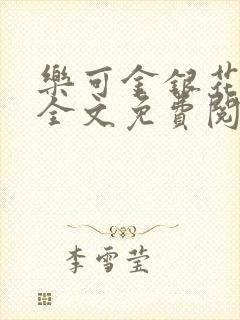 樂可金銀花
全文免費閱
李雪莹